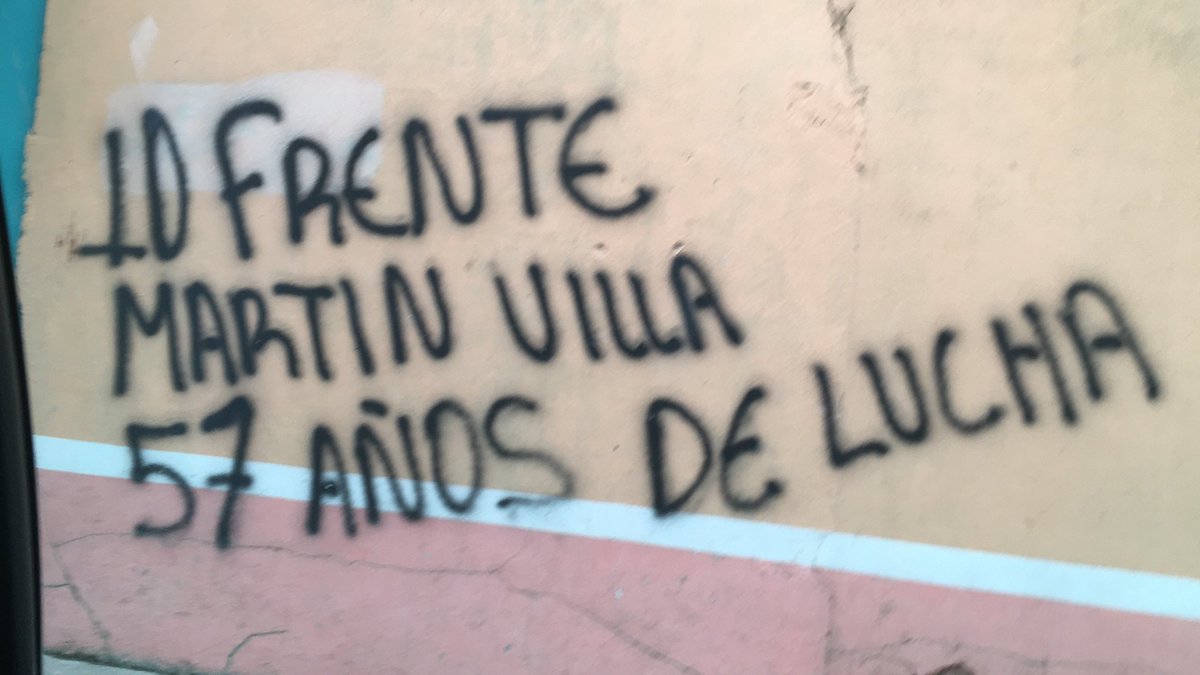 10 FRENTE
MARTIN VILLA
57 AÑOS DE LUCHA